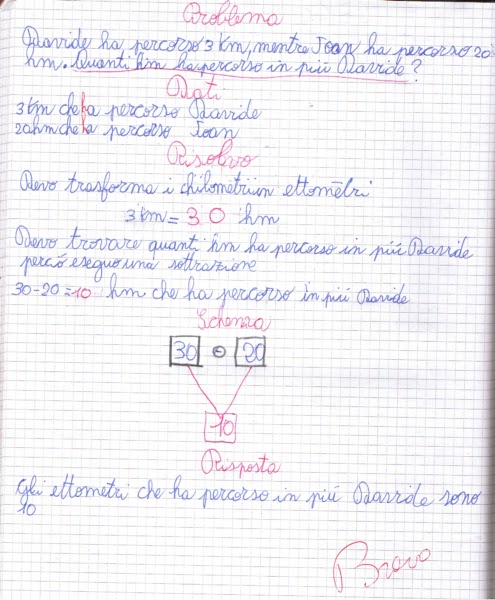 Problema
Davide ha percorso 3 km, mentre Joan ha percorso 20
hm. Quanti hm ha percorso in più Davide?
Dati
3 km che ha percorso Davide
20 hm che ha percorso Joan
Risolvo
Devo trasforma i chilometri in ettometri
3 km = 30 hm
Devo trovare quanti hm ha percorso in più Davide
perció eseguo una sottrazione
30-20=10 hm che ha percorso in più Davide
Schema
30 - 20
10
Risposta
Gli ettometri che ha percorso in più Davide sono
10
Bravo